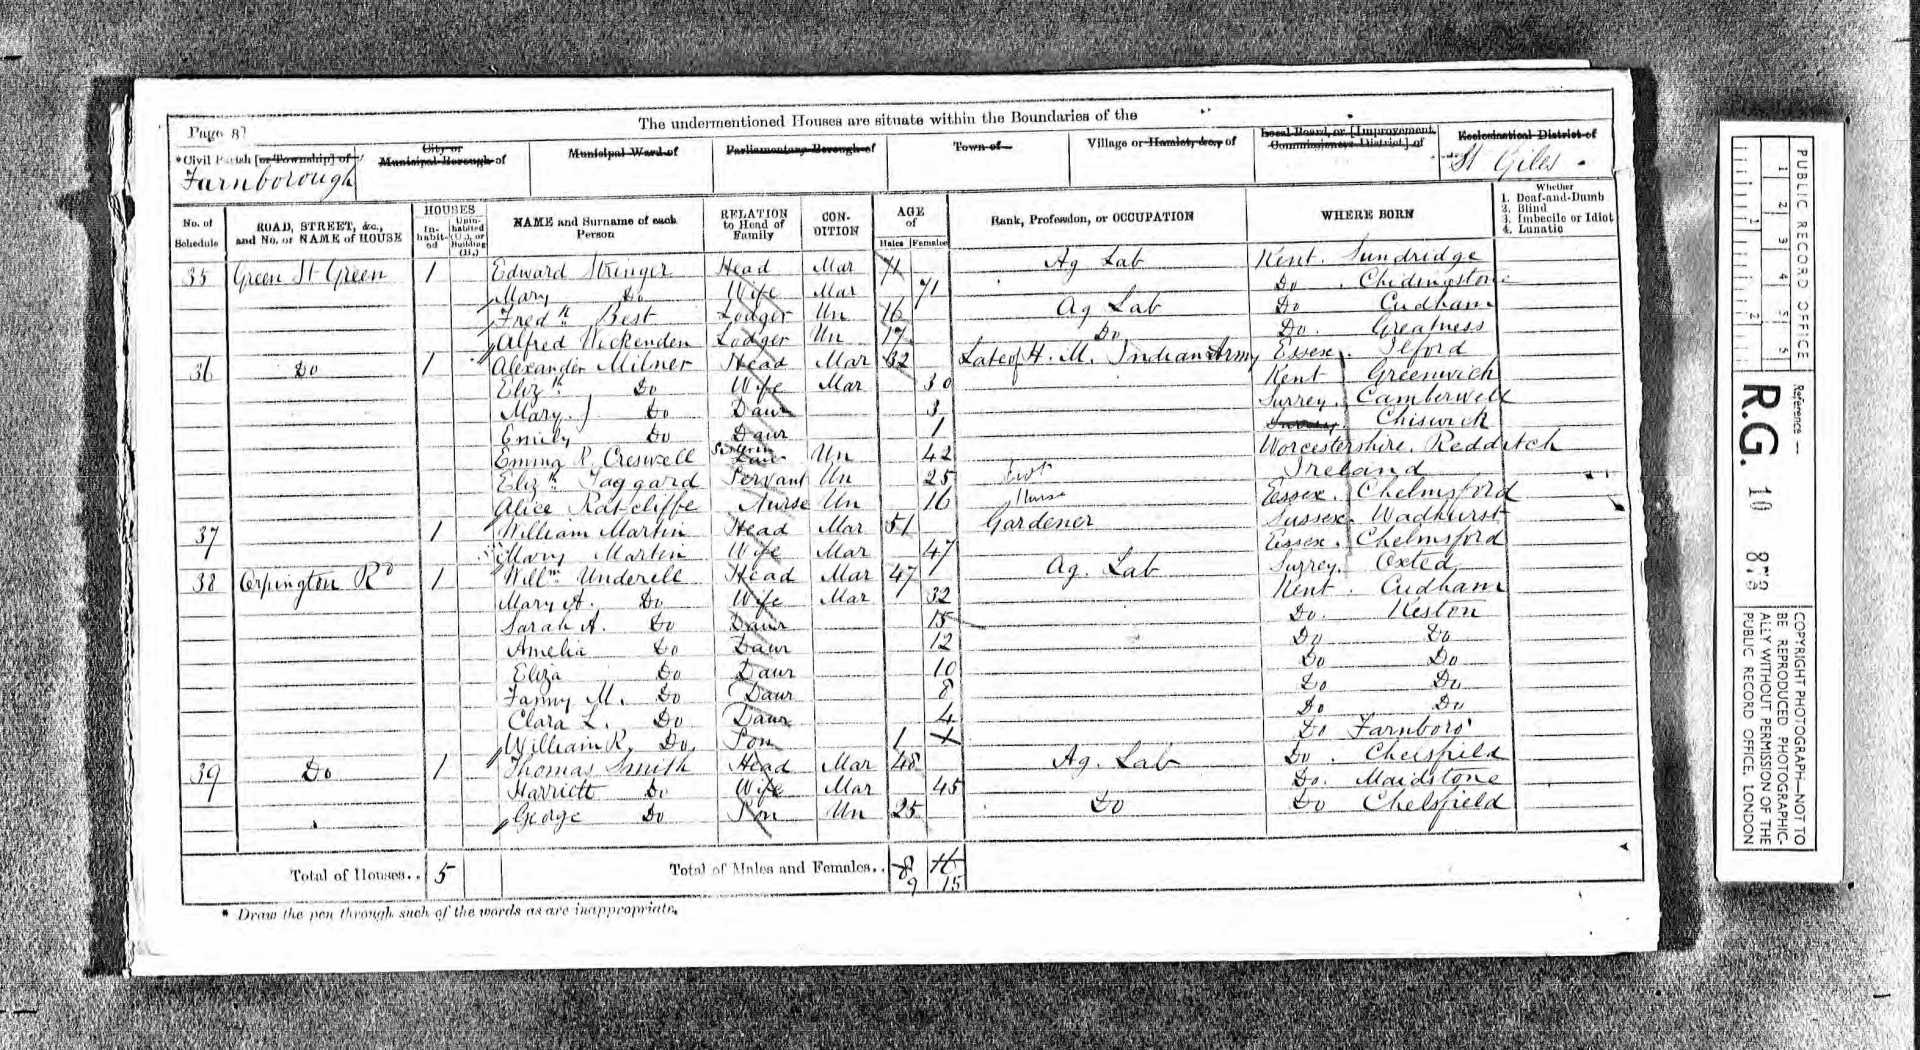 The undermentioned Houses are situate within the Boundaries of the
Page 8
*Civil Parish [or Township] of
Farnborough
City or Municipal Borough of
Municipal Ward of
Parliamentary Borough of
Town of
Village or Hamlet, &c., of
Local Board, or [Improvement Commissioners District] of
Ecclesiastical District of
St Giles
No. of Schedule
ROAD, STREET, &c., and No. or NAME of HOUSE
HOUSES
In-habit-ed
Unin-habited (U.), or Building (B.)
NAME and Surname of each Person
RELATION to Head of Family
CON-DITION
AGE of
Males
Females
Rank, Profession, or OCCUPATION
WHERE BORN
Whether
1. Deaf-and-Dumb
2. Blind
3. Imbecile or Idiot
4. Lunatic
35 Green St Green 1 Edward Stringer Head Mar 71 Ag Lab Kent Sundridge
Mary Do Wife Mar 71 Do Chidingstone
Fredk Best Lodger Un 16 Ag Lab Do Cudham
Alfred Wickenden Lodger Un 17 Do Do Greatness
36 Do 1 Alexander Milner Head Mar 32 Late of H. M. Indian Army Essex Ilford
Elizth Do Wife Mar 30 Kent Greenwich
Mary J Do Daur 3 Surrey Camberwell
Emily Do Daur 1 Surrey Chiswick
Emma R Creswell Sister in Law Un 42 Worcestershire Redditch
Elizth Taggard Servant Un 25 Ireland
Alice Ratcliffe Nurse Un 16 Nurse Essex Chelmsford
37 1 William Martin Head Mar 51 Gardener Sussex Wadhurst
Mary Martin Wife Mar 47 Essex Chelmsford
38 Orpington Rd 1 Willm Underell Head Mar 47 Ag. Lab Surrey Oxted
Mary A. Do Wife Mar 32 Kent Cudham
Sarah A. Do Daur 15 Do Keston
Amelia Do Daur 12 Do Do
Eliza Do Daur 10 Do Do
Fanny M. Do Daur 8 Do Do
Clara L. Do Daur 4 Do Do
William R. Do Son 1 Do Farnboro'
39 Do 1 Thomas Smith Head Mar 48 Ag. Lab Do Chelsfield
Harriett Do Wife Mar 45 Do Maidstone
George Do Son Un 25 Do Do Chelsfield
Total of Houses.. 5
Total of Males and Females.. 8 16
9 15
* Draw the pen through such of the words as are inappropriate.
PUBLIC RECORD OFFICE
1 2 3 4 5 5
1 2
Reference —
R.G. 10 873
COPYRIGHT PHOTOGRAPH—NOT TO
BE REPRODUCED PHOTOGRAPHIC-
ALLY WITHOUT PERMISSION OF THE
PUBLIC RECORD OFFICE, LONDON